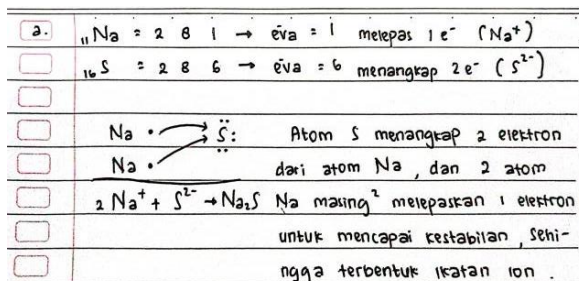 a. ₁₁Na = 2 8 1 → eva = 1 melepas 1 e⁻ (Na⁺)
₁₆S = 2 8 6 → eva = 6 menangkap 2e⁻ (S²⁻)
Na • S: Atom S menangkap 2 elektron
Na • dari atom Na, dan 2 atom
2 Na⁺ + S²⁻ → Na₂S Na masing² melepaskan 1 elektron
untuk mencapai kestabilan, sehi-
ngga terbentuk ikatan ion.